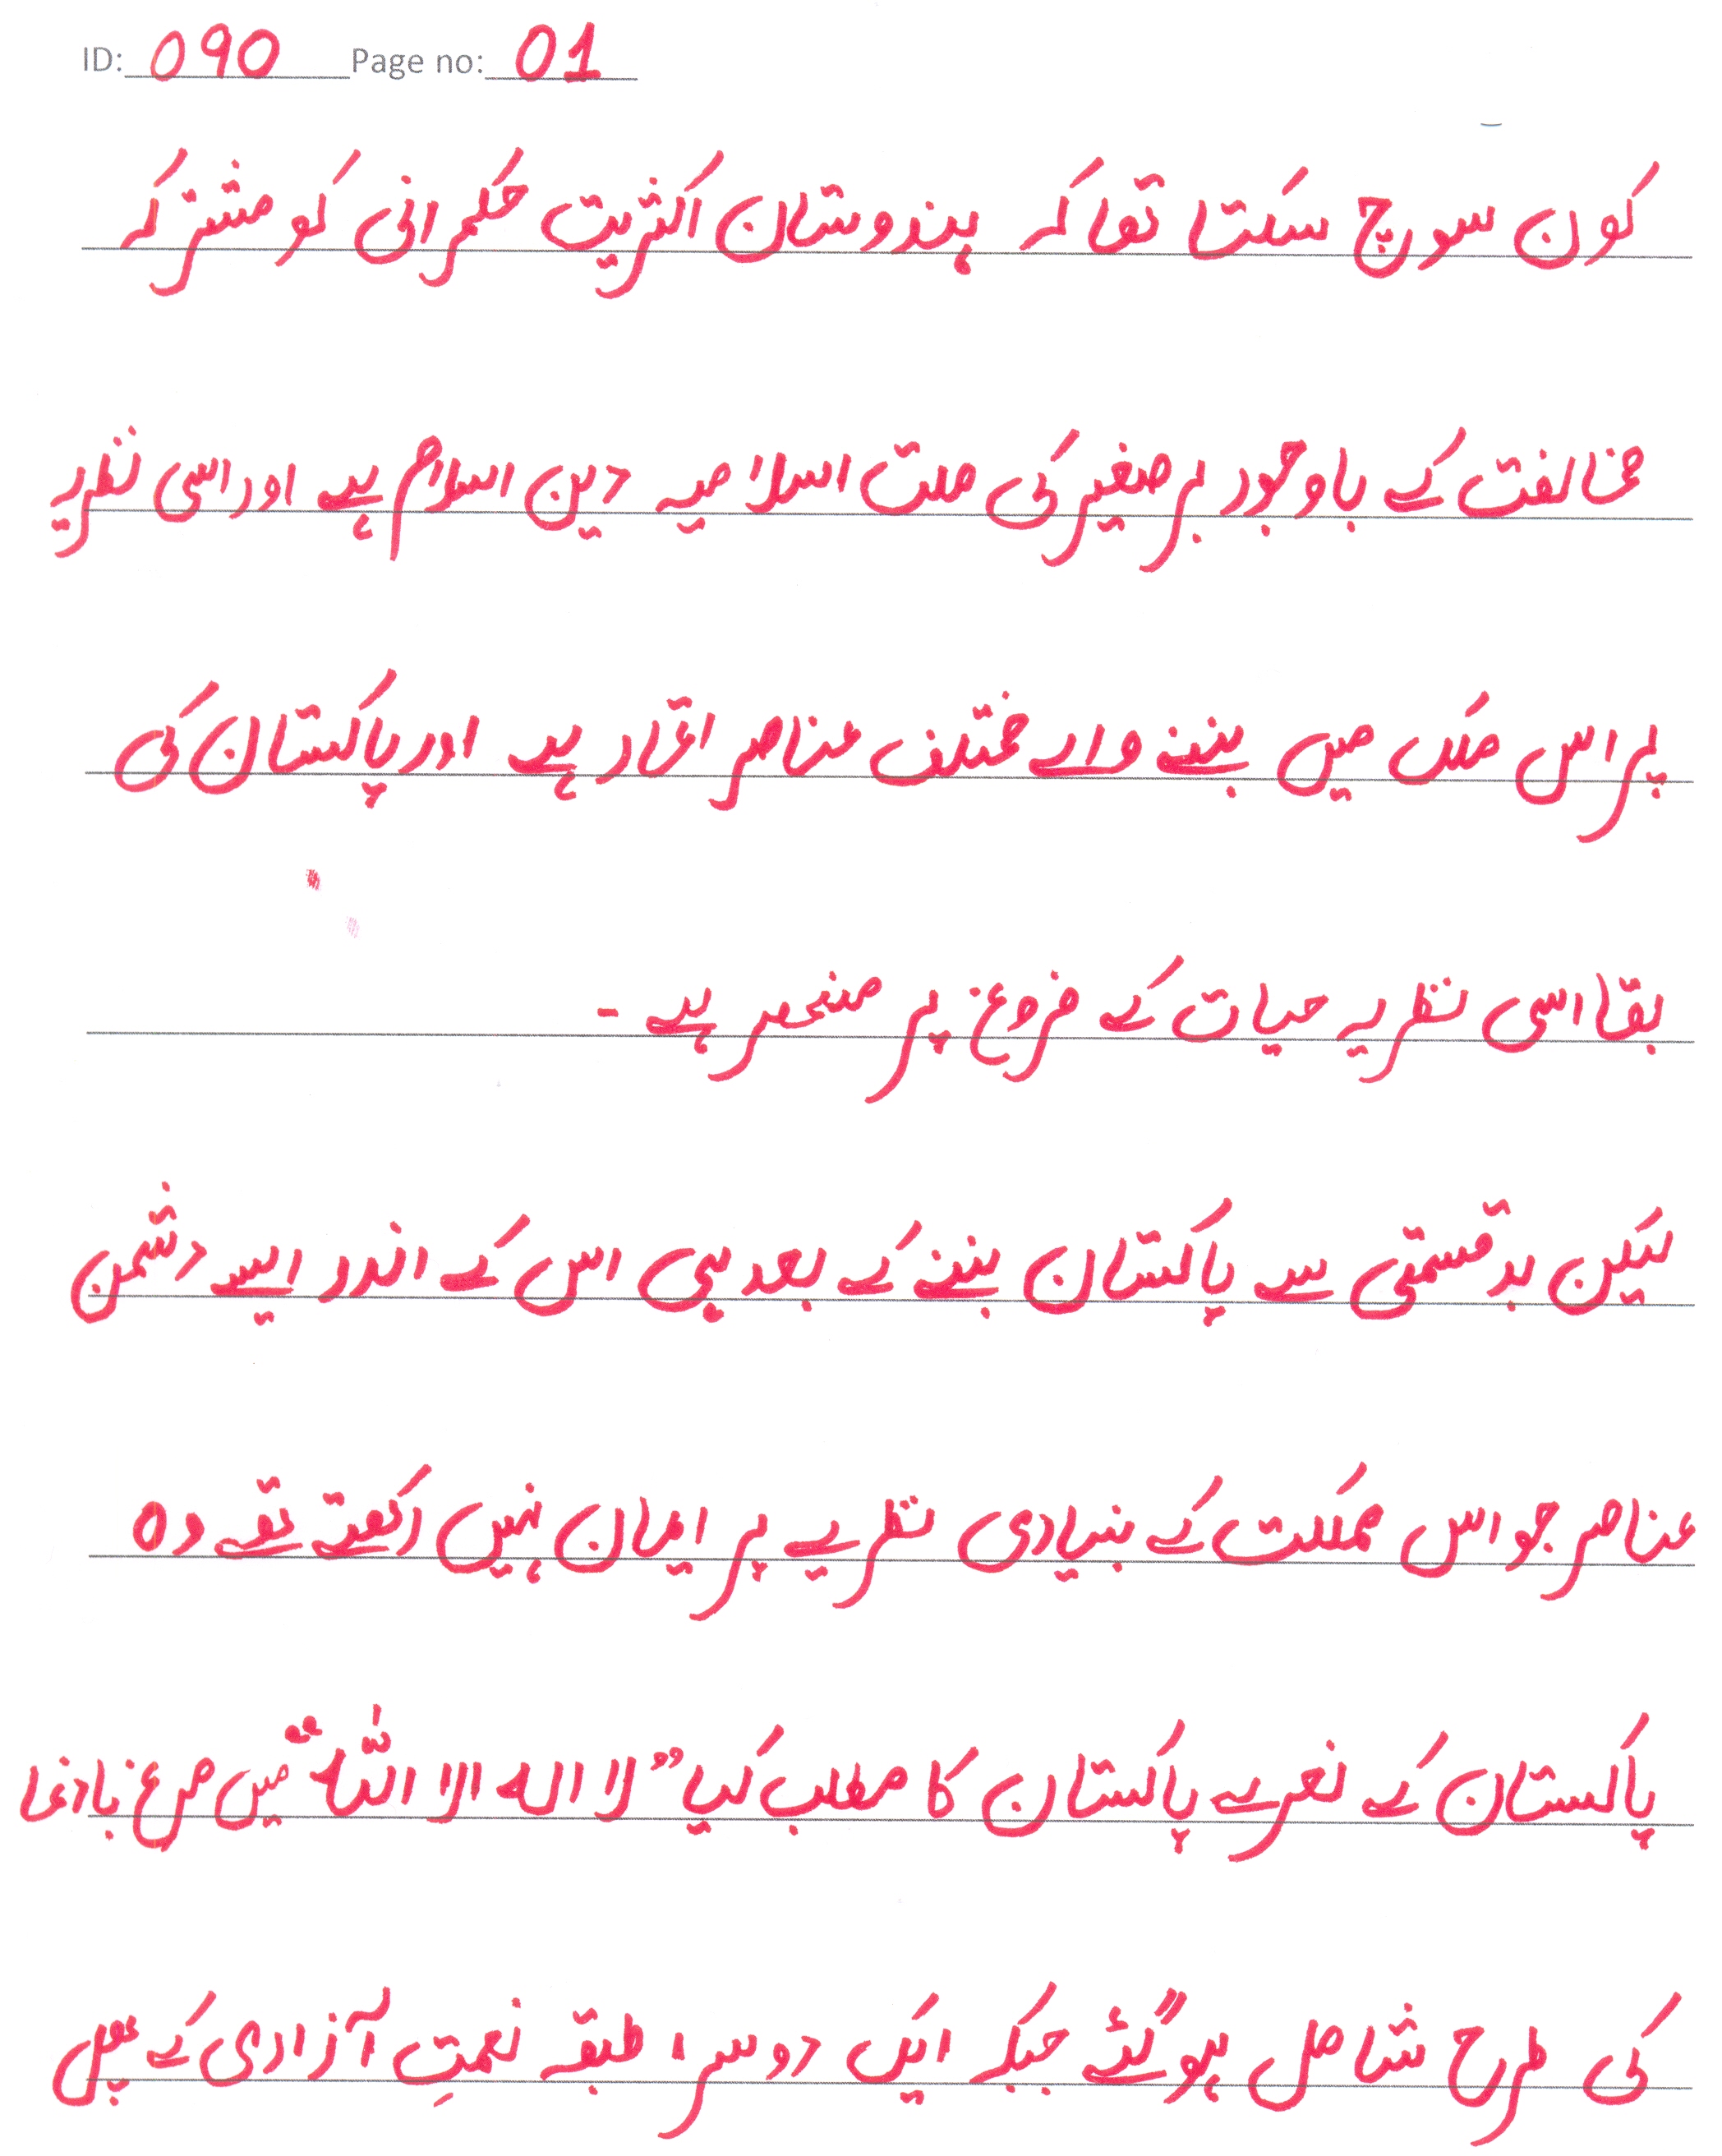 ID: 090 Page no: 01
کون سوچ سکتا تھا کہ ہندوستان اکثریت حکمرانی کو مشترکہ
مخالفت کے باوجود برصغیر کی ملت اسلامیہ دین اسلام ہے اور اسی نظریہ
پر اس ملک میں بننے والے مختلف عناصر اتحاد ہے اور پاکستان کی
بقا اسی نظریہ حیات کے فروغ پر منحصر ہے -
لیکن بدقسمتی سے پاکستان بننے کے بعد ہی اس کے اندر ایسے دشمن
عناصر جو اس مملکت کے بنیادی نظریے پر ایمان نہیں رکھتے تھے وہ
پاکستان کے نعرے پاکستان کا مطلب کیا "لا الہ الا اللہ" میں مرغ بادنما
کی طرح شامل ہوگئے جبکہ ایک دوسرا طبقہ نعمتِ آزادی کے پھل